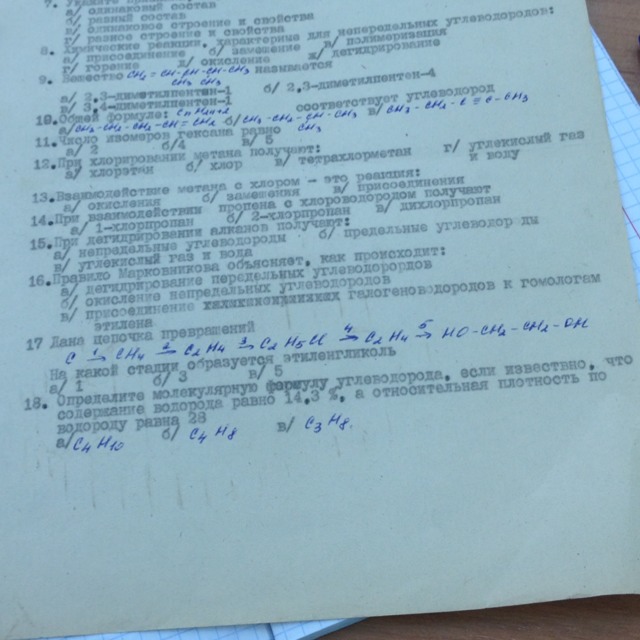 7. Укажите
а/ одинаковый состав
б/ разный состав
в/ одинаковое строение и свойства
г/ разное строение и свойства
8. Химические реакции, характерные для непредельных углеводородов:
а/ присоединение б/ замещение в/ полимеризация
г/ горение д/ окисление ж/ дегидрирование
9. Вещество CH₂ = CH-CH-CH-CH₃ называется
CH₃ CH₃
а/ 2,3-диметилпентен-1 б/ 2,3-диметилпентен-4
в/ 3,4-диметилпентен-1
10. Общей формуле: соответствует углеводород
а/ CH₃-CH₂-CH₂-CH=CH₂ б/ CH₃-CH₂-CH-CH₃ в/ CH₃-CH₂-C≡C-CH₃
CH₃
11. Число изомеров гексана равно
а/ 2 б/4 в/ 5
12. При хлорировании метана получают:
а/ хлорэтан б/ хлор в/ тетрахлорметан г/ углекислый газ
и воду
13. Взаимодействие метана с хлором - это реакция:
а/ окисления б/ замещения в/ присоединения
14. При взаимодействии пропена с хлороводородом получают
а/ 1-хлорпропан б/ 2-хлорпропан в/ дихлорпропан
15. При дегидрировании алканов получают:
а/ непредельные углеводороды б/ предельные углеводор ды
в/ углекислый газ и вода
16. Правило Марковникова объясняет, как происходит:
а/ дегидрирование передельных углеводорордов
б/ окисление непредельных углеводородов
в/ присоединение галогеноводородов к гомологам
этилена
17 Дана цепочка превращений
C 1→ CH₄ 2→ C₂H₄ 3→ C₂H₅Cl 4→ C₂H₄ 5→ HO-CH₂-CH₂-OH
На какой стадии образуется этиленгликоль
а/ 1 б/ 3 в/ 5
18. Определите молекулярную формулу углеводорода, если известно, что
содержание водорода равно 14,3 %, а относительная плотность по
водороду равна 28
а/ C₄H₁₀ б/ C₄H₈ в/ C₃H₈.